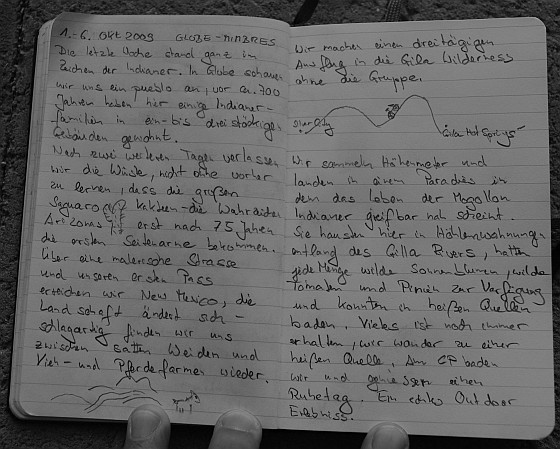 1.-6. Okt 2009 GLOBE-MIMBRES
Die letzte Woche stand ganz im
Zeichen der Indianer. In Globe schauen
wir uns ein pueblo an, vor ca. 700
Jahren haben hier einige Indianer-
familien in ein- bis dreistöckigen
Gebäuden gewohnt.
Nach zwei weiteren Tagen verlassen
wir die Wüste, nicht ohne vorher
zu lernen, dass die großen
Seguaro Kakteen - die Wahrzeichen
Arizonas erst nach 75 Jahren
die ersten Seitenarme bekommen.
Über eine malerische Strasse
und unseren ersten Pass
erreichen wir New Mexico, die
Landschaft ändert sich -
schlagartig finden wir uns
zwischen satten Weiden und
Vieh- und Pferdefarmen wieder.
Wir machen einen dreitägigen
Ausflug in die Gila Wilderness
ohne die Gruppe.
Silver City
Gila Hot Springs
Wir sammeln Höhenmeter und
landen in einem Paradies in
dem das Leben der Mogollon
Indianer greifbar nah scheint.
Sie hausten hier in Höhlenwohnungen
entlang des Gilla Rivers, hatten
jede Menge wilde Sonnenblumen, wilde
Tomaten und Pinien zur Verfügung
und konnten in heißen Quellen
baden. Vieles ist noch immer
erhalten, wir wandern zu einer
heißen Quelle, am CP baden
wir und geniessen einen
Ruhetag. Ein echtes Outdoor
Erlebniss.